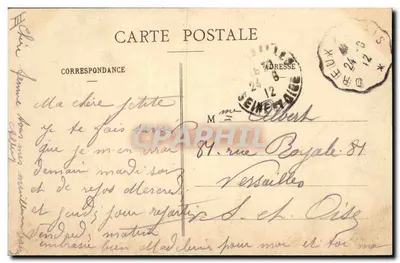 CARTE POSTALE
CORRESPONDANCE
ADRESSE
VERSAILLES
24 - 6
12
SEINE-ET-OISE
DREUX
24 - 6
12
Ma chère petite
Je te fais
que je
demain mardi soir
et de repos Mercredi
et jeudi pour repartir
Vendredi matin
embrasse bien Madeleine pour moi et toi ma
chère femme tous mes meilleurs
Mme Albert
81 rue Royale 81
Versailles
S. et Oise